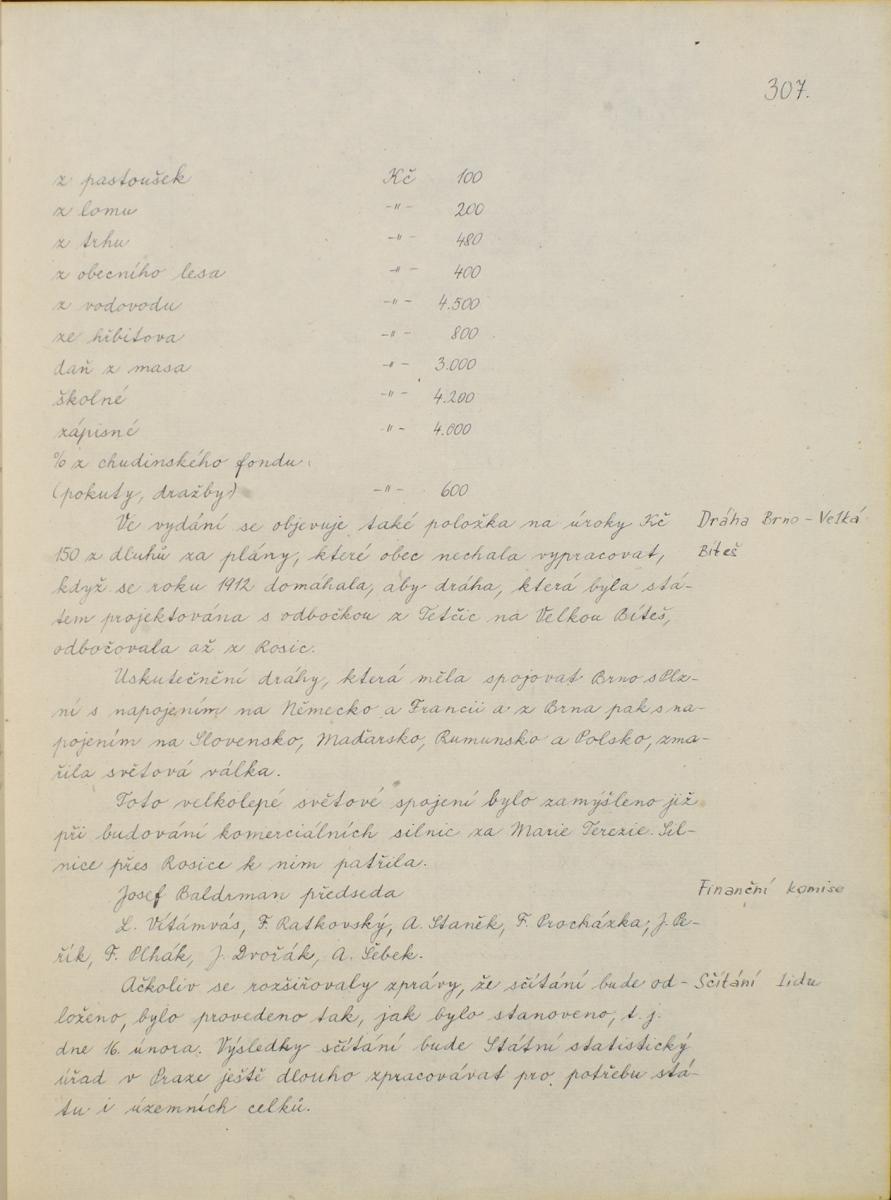 307.
z pastoušek Kč 100
z lomu -"- 200
z trhu -"- 480
z obecního lesa -"- 400
z vodovodu -"- 4.500
ze hřbitova -"- 800
daň z masa -"- 3.000
školné -"- 4.200
zápisné -"- 4.600
% z chudinského fondu
(pokuty, dražby) -"- 600
Ve vydání se objevuje také položka na úroky Kč
Dráha Brno - Velká
150 z dluhů za plány, které obec nechala vypracovat,
Bíteš
když se roku 1912 domáhala, aby dráha, která byla stá-
tem projektována s odbočkou z Tetčic na Velkou Bíteš,
odbočovala až z Rosic.
Uskutečnění dráhy, která měla spojovat Brno s Plz-
ní s napojením na Německo a Francii a z Brna pak s na-
pojením na Slovensko, Maďarsko, Rumunsko a Polsko, zma-
řila světová válka.
Toto velkolepé světové spojení bylo zamýšleno již
při budování komerciálních silnic za Marie Terezie. Sil-
nice přes Rosice k nim patřila.
Josef Baldrman předseda
Finanční komise
L. Vítámvás, F. Ratkovský, A. Staněk, F. Procházka, J. Pe-
řík, F. Plhák, J. Dvořák, A. Šebek.
Ačkoliv se rozšiřovaly zprávy, že sčítání bude od-
Sčítání lidu
loženo, bylo provedeno tak, jak bylo stanoveno, t. j.
dne 16. února. Výsledky sčítání bude Státní statistický
úřad v Praze ještě dlouho zpracovávat pro potřebu stá-
tu i územních celků.